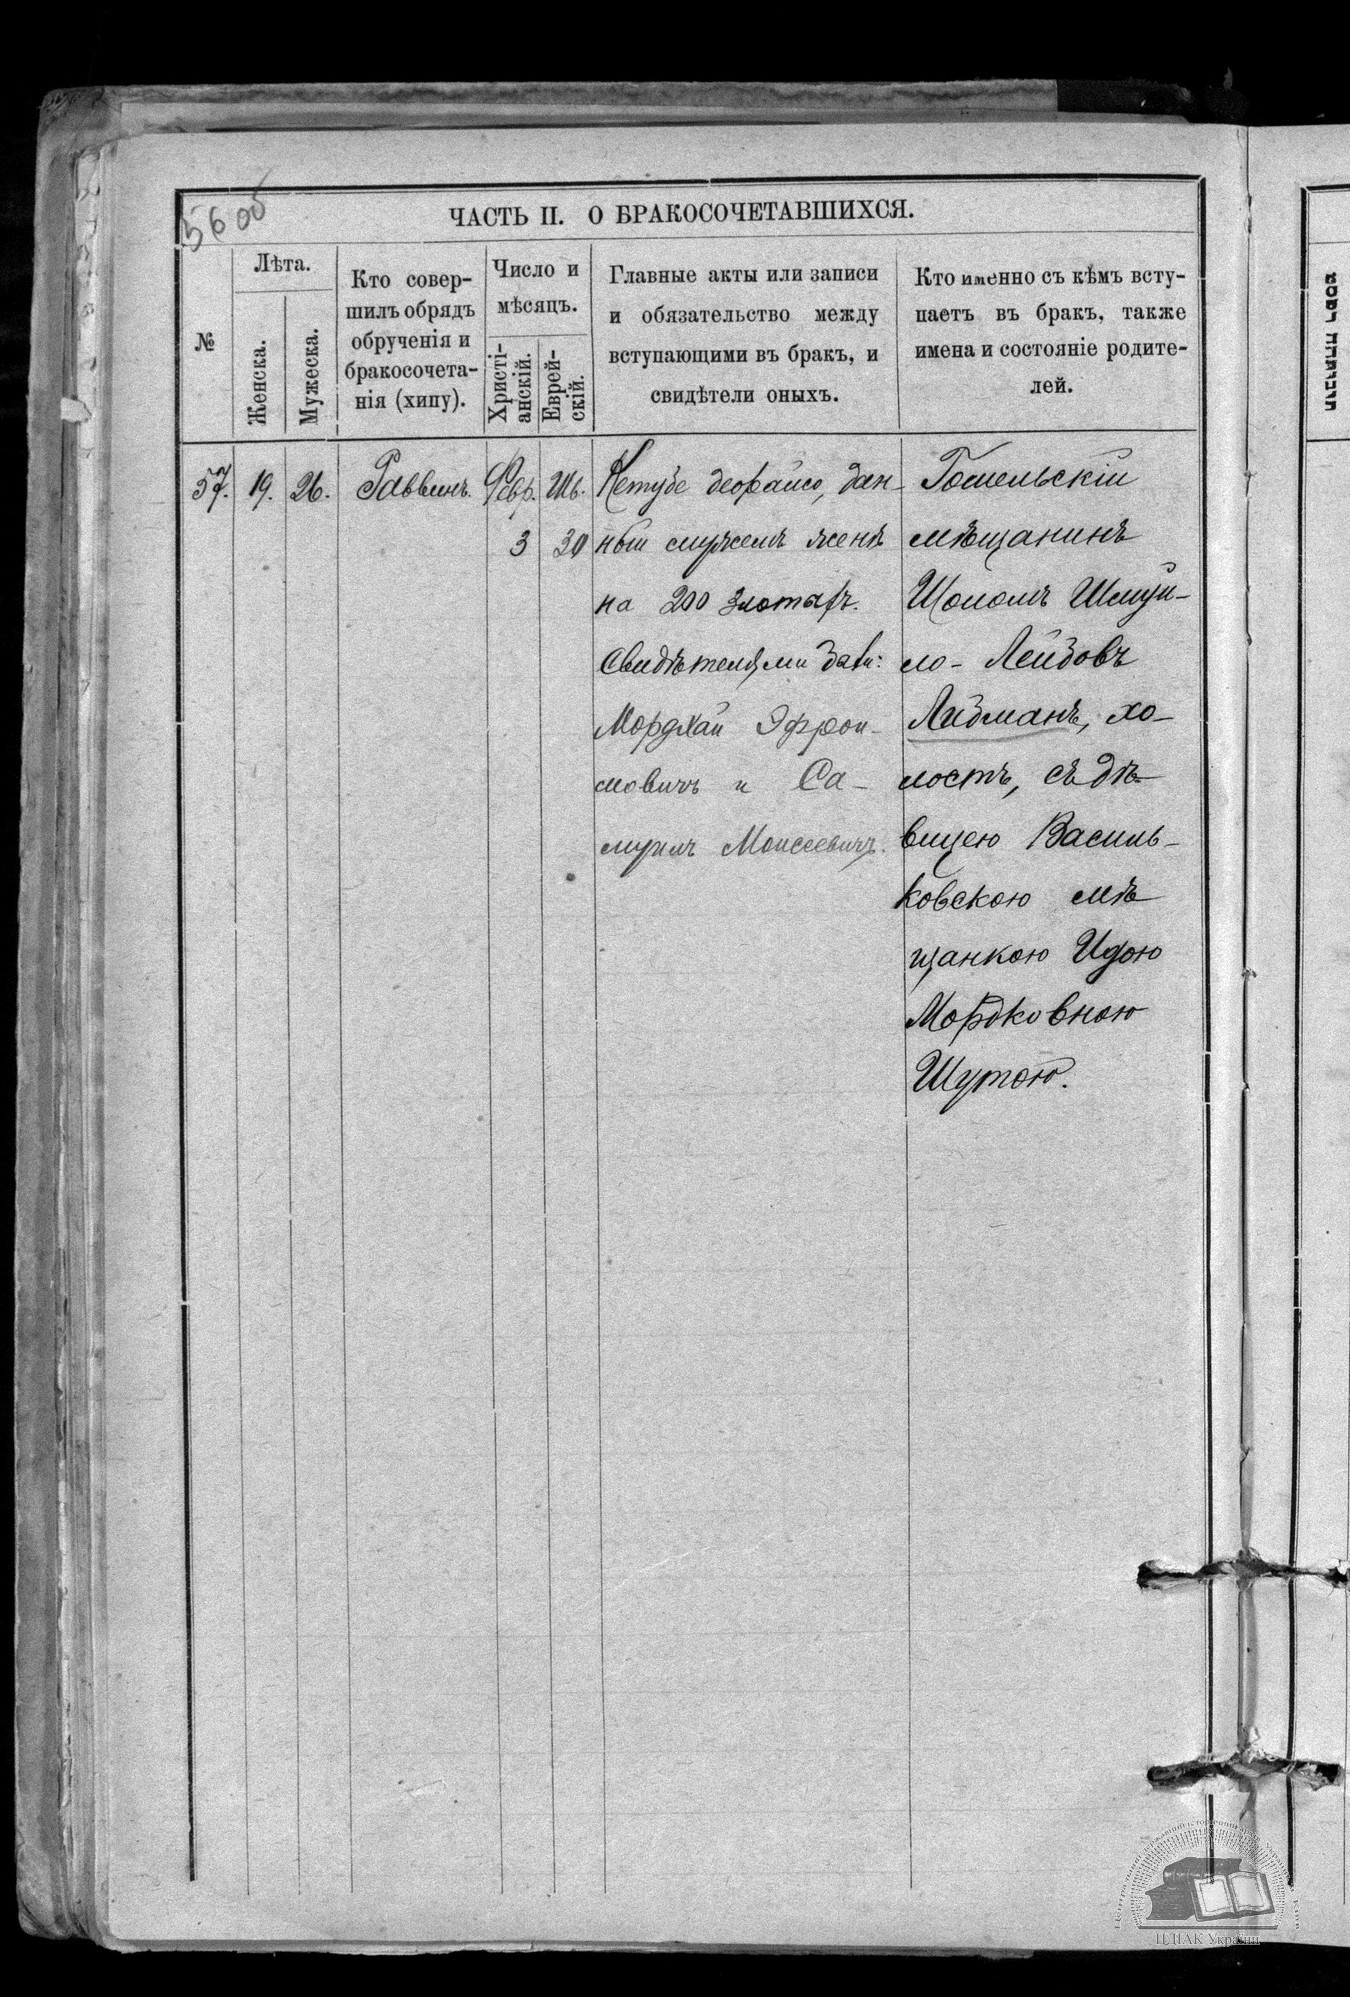 56 об
ЧАСТЬ II. О БРАКОСОЧЕТАВШИХСЯ.
№
Лѣта.
Женска.
Мужеска.
Кто совер-
шилъ обрядъ
обрученія и
бракосочета-
нія (хипу).
Число и
мѣсяцъ.
Христі-
анскій.
Еврей-
скій.
Главные акты или записи
и обязательство между
вступающими въ бракъ, и
свидѣтели оныхъ.
Кто именно съ кѣмъ всту-
паетъ въ бракъ, также
имена и состояніе родите-
лей.
57. 19. 26. Раввинъ. Февр. Шв.
3 30
Кетубе деорайсо, дан-
ный мужемъ женѣ
на 200 злотыхъ.
Свидѣтелями были:
Мордхай Эфрои-
мовичъ и Са-
муилъ Моисеевичъ.
Гомельскій
мѣщанинъ
Шоломъ Шмуй-
ло-Лейзовъ
Лидманъ, хо-
лостъ, съ дѣ-
вицею Василь-
ковскою мѣ
щанкою Идою
Мордковною
Шутою.
ЦДІАК України